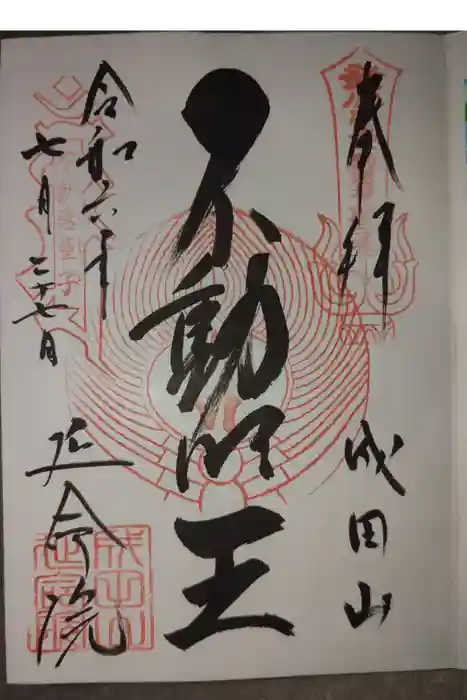 奉拝
成田山
不動明王
令和六年
七月二十七日
延命院